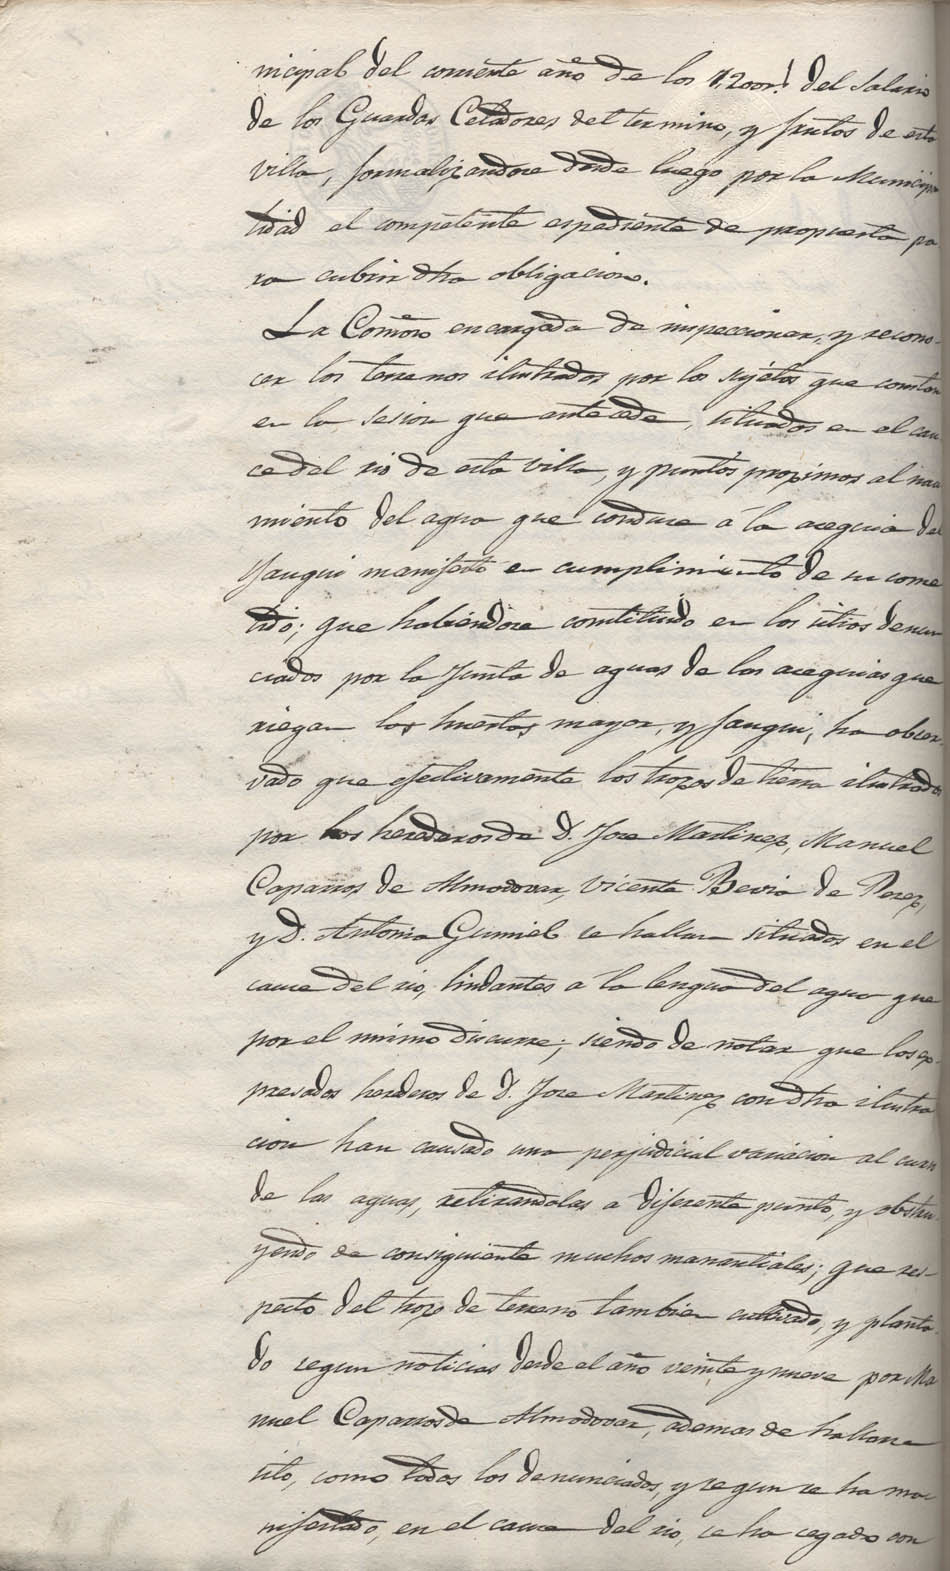 nicipal del corriente año de los 11,200 r.s del salario
de los Guardas Celadores del termino, y frutos de esta
villa, formalizandose desde luego por la Municipa
lidad el competente espediente de propuesta pa
ra cubrir dha obligacion.
La Comon encargada de inspeccionar, y recono-
cer los terrenos ilustrados por los sujetos que constan
en la sesion que antecede, situados en el cau
ce del rio de esta villa, y puntos proximos al naci
miento del agua que conduce á la acequia del
Fauqui manifestó en cumplimiento de su come
tido; que habiendose constituido en los sitios denun
ciados por la Junta de aguas de las acequias que
riegan los huertos mayor, y Fauqui, ha obser-
vado que efectivamente los trozos de tierra ilustrados
por los herederos de D. Jose Martinez, Manuel
Caparros de Almodovar, Vicente Bevia de Perez,
y D. Antonia Gumiel se hallan situados en el
cauce del rio, lindantes á la lengua del agua que
por el mismo discurre; siendo de notar que los ex-
presados herederos de D. Jose Martinez con dha ilustra
cion han causado una perjudicial variacion al curso
de las aguas, retirandolas a diferente punto, y obstru-
yendo de consiguiente muchos manantiales; que res-
pecto del trozo de terreno tambien cultivado, y planta-
do segun noticias desde el año veinte y nueve por Ma
nuel Caparros de Almodovar, ademas de hallarse
sito, como todos los denunciados, y segun se ha ma-
nifestado, en el cauce del rio, se ha cegado con